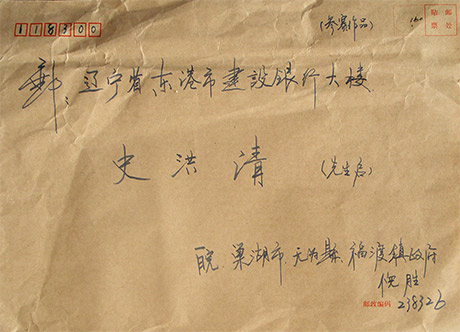 118300
(参赛作品)
贴邮
票处
邮：辽宁省东港市建設银行大楼
史洪清 (先生启)
皖. 巢湖市. 无为縣. 福渡镇政府
倪胜
邮政编码 238326